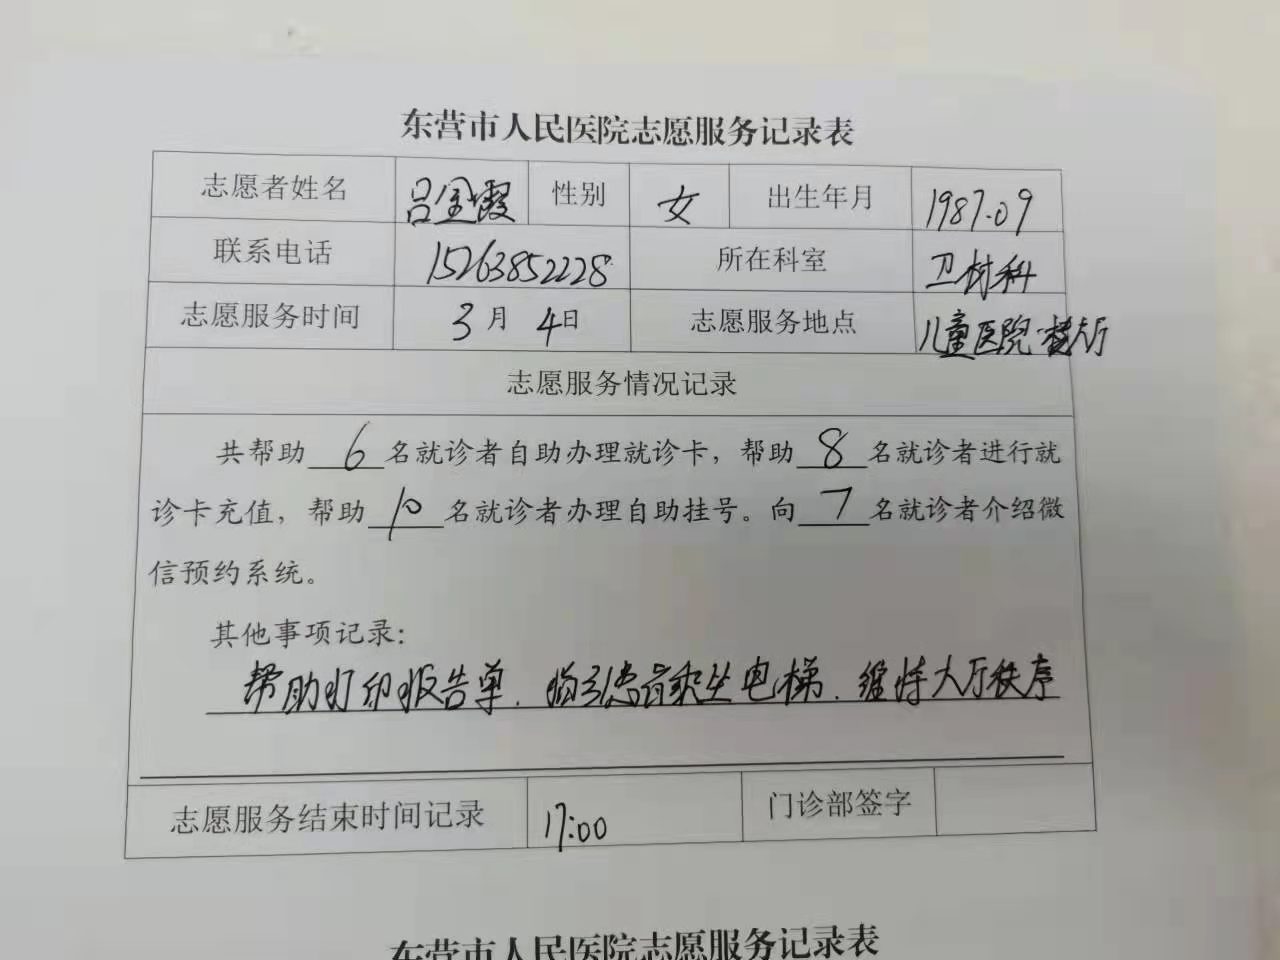 东营市人民医院志愿服务记录表
志愿者姓名 吕金霞 性别 女 出生年月 1987.09
联系电话 15263852228 所在科室 卫材科
志愿服务时间 3月4日 志愿服务地点 儿童医院一楼大厅
志愿服务情况记录
共帮助 6 名就诊者自助办理就诊卡，帮助 8 名就诊者进行就
诊卡充值，帮助 10 名就诊者办理自助挂号。向 7 名就诊者介绍微
信预约系统。
其他事项记录：
帮助打印报告单、指引患者乘坐电梯、维持大厅秩序
志愿服务结束时间记录 17:00 门诊部签字
东营市人民医院志愿服务记录表